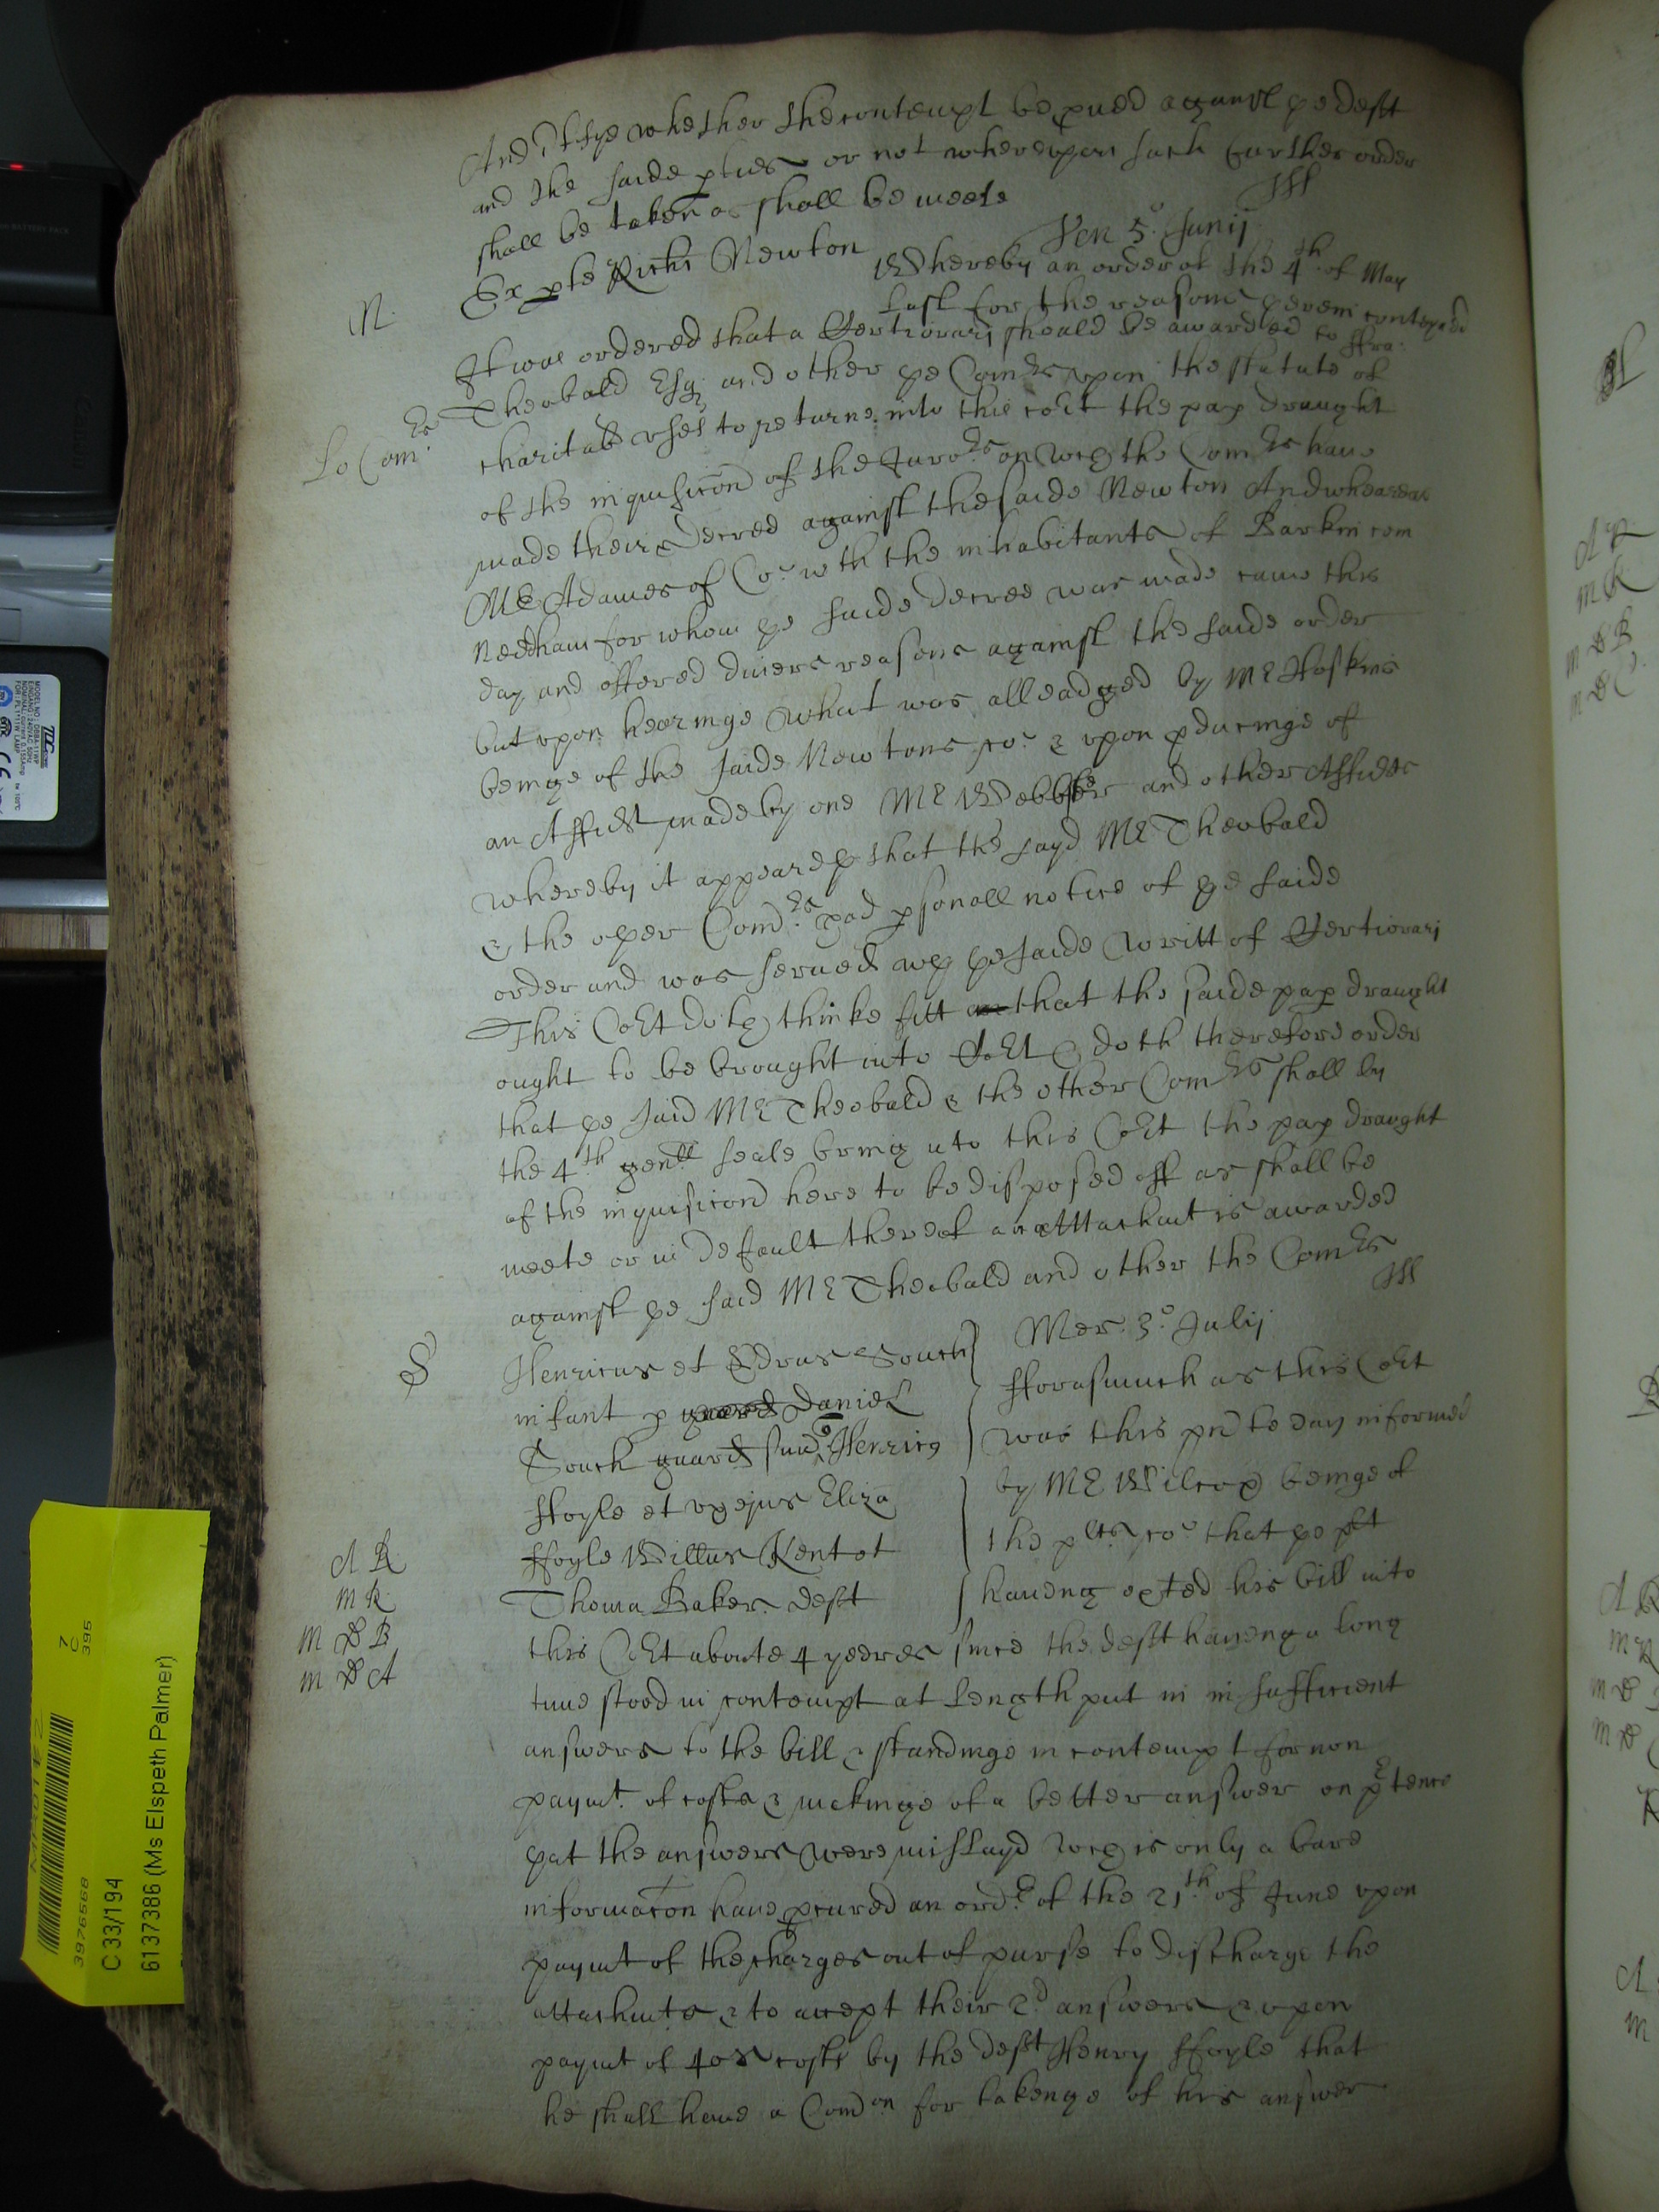 And ctifye whether the contempt be pued against ye deft
and the saide pties or not whereupon such further order
shall be taken as shall be meete
Ex pte Richi Newton
Ven 5o Junij
Whereby an order of the 4th of May
last for the reasons yerein conteyned
N.
It was ordered that a Certiorarj should be awarded to ffra:
Theobald Esq and other ye Comrs upon the statute of
Lo Comrs
charitab uses to returne into this cort the pap draught
of the inquisicon of the Jurors on wch the Comrs haue
made their decree against the saide Newton And wheareas
Mr Adames of Co: wth the inhabitants of Barkin com
Needham for whom ye saide decree was made came this
day and offered diuers reasons against the saide order
but upon hearinge what was alleadged by Mr Hoskins
beinge of the saide Newtons co: & upon pducinge of
an Affidt made by one Mr Webber and other Affidts
whereby it appeareth that the sayd Mr Theobald
& the oyer Comrs had psonall notice of ye saide
order and was serued wth ye saide writt of Certiorarj
This Cort doth thinke fitt that the saide pap draught
ought to be brought into Cort & doth therefore order
that ye said Mr Theobald & the other Comrs shall by
the 4th genll seale bring into this Cort the pap draught
of the inquisicon here to be disposed off as shall be
meete or in default thereof an attachmt is awarded
against ye said Mr Theobald and other the Comrs
S
Mer. 3o Julij
Henricus et Edrus South
infant p Daniel
South guard suu Henricus
ffoyle et ux ejus Eliza
ffoyle Willus Kent et
Thoma Baker deft
fforasmuch as this Cort
was this pnte day informed
by Mr Wilcox beinge of
the plts co: that ye plt
haueng exted his bill into
A R
M R
M D B
M D A
this Cort aboute 4 yeeres since the deft haueng a long
time stood in contempt at length put in insufficient
answers to the bill & standinge in contempt for non
paymt of costs & makinge of a better answer on ptence
yat the answers were mislayd wch is only a bare
informacon haue pcured an order of the 21th of June upon
paymt of the charges out of purse to discharge the
attachmts & to accept their 2d answers & upon
paymt of 40s costs by the deft Henry ffoyle that
he shall haue a Comon for takenge of his answer
C 33/194
6137386 (Ms Elspeth Palmer)
3976568
7
C
395